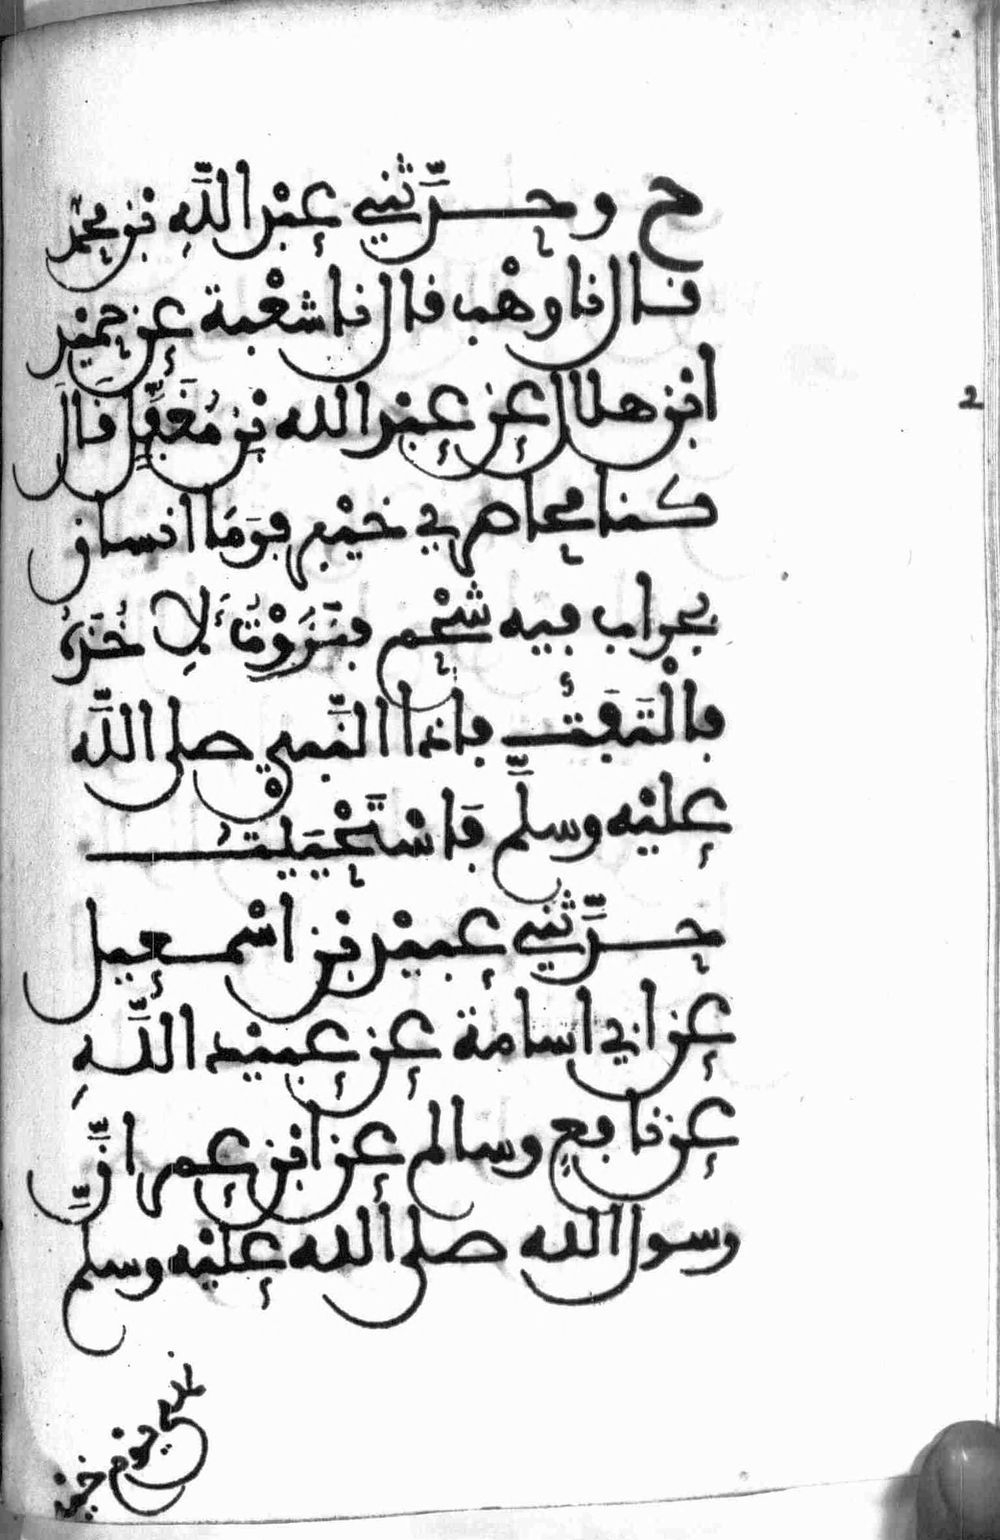 ح وحَدَّثَنِي عَبْدُ اللَّهِ بْنُ مُحَمَّد
قال نا وهْب قال نا شعْبة عن حميْد
ابن هلال عن عبْد الله بْنِ مُغَفَّلٍ قالَ
كنا محاصري خيْبر فَرَمَا انسان
بجراب فيه شحْم فنَزَوْتُ لِآخُذَهُ
فالْتَفَتُّ فإذا النَّبي صلى اللَّه
عليْه وسلَّم فَاسْتَحْيَيْتُ
حدَّثني عبيْد بن اسْمعيل
عن ابي اسامة عن عبيْد اللَّهِ
عن نافعٍ وسالم عن ابن عمر انَّ
رسول الله صلى الله عليْه وسلَّم